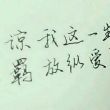 谅我这一
羁放纵爱